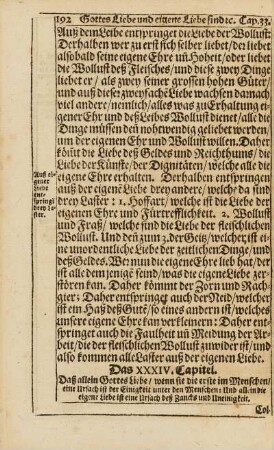 192 Gottes Liebe und eigene Liebe sind ꝛc. Cap. 33.
Auß dem Leibe entspringet die Liebe der Wollust:
Derhalben wer zu erst sich selber liebet / der liebet
alsobald seine eigene Ehre uñ Hoheit / oder liebet
die Wollust deß Fleisches / und diese zwey Dinge
liebet er / als zwey seiner grossen hohen Güter /
und auß dieser zweyfache Liebe wachsen darnach
viel andere / nemlich / alles was zu Erhaltung ei-
gener Ehr und deß Leibes Wollust dienet / alle die
Dinge müssen deñ nohtwendig geliebet werden /
um der eigenen Ehr und Wollust willen. Daher
kõmt die Liebe deß Geldes und Reichthums / die
Liebe der Künste / der Dignitäten / welche alle die
eigene Ehre erhalten. Derhalben entspringen
auß der eigenẽ Liebe drey andere / welche / da sind
drey Laster: 1. Hoffart / welche ist die Liebe der
eigenen Ehr und Fürtrefflichkeit. 2. Wollust
und Fraß / welche sind die Liebe der fleischlichen
Wollust. Und deñ zum 3. der Geitz / welcher ist ei-
ne unordentliche Liebe der zeitlichen Dinge / und
deß Geldes. Wer nun die eigene Ehr lieb hat / der
ist alle dem jenigẽ feind / was die eigene Liebe zer-
stören kan. Daher kömmt der Zorn und Rach-
gier; Daher entspringet auch der Neid / welcher
ist ein Haß deß Gutẽ / so eines andern ist / welches
unsere eigene Ehr kan verkleinern: Daher ent-
springet auch die Faulheit uñ Meidung der Ar-
beit / die der fleischlichen Wollust zuwider ist / und
also kommen alle Laster auß der eigenen Liebe.
Auß ei-
gener
Liebe
ent-
springẽ
drey La-
ster.
Das XXXIV. Capitel.
Daß allein Gottes Liebe / wenn sie die erste im Menschen /
eine Ursach ist der Einigkeit unter den Menschen: Und allein die
eigene Liebe ist eine Ursach deß Zancks und Uneinigkeit.
Col